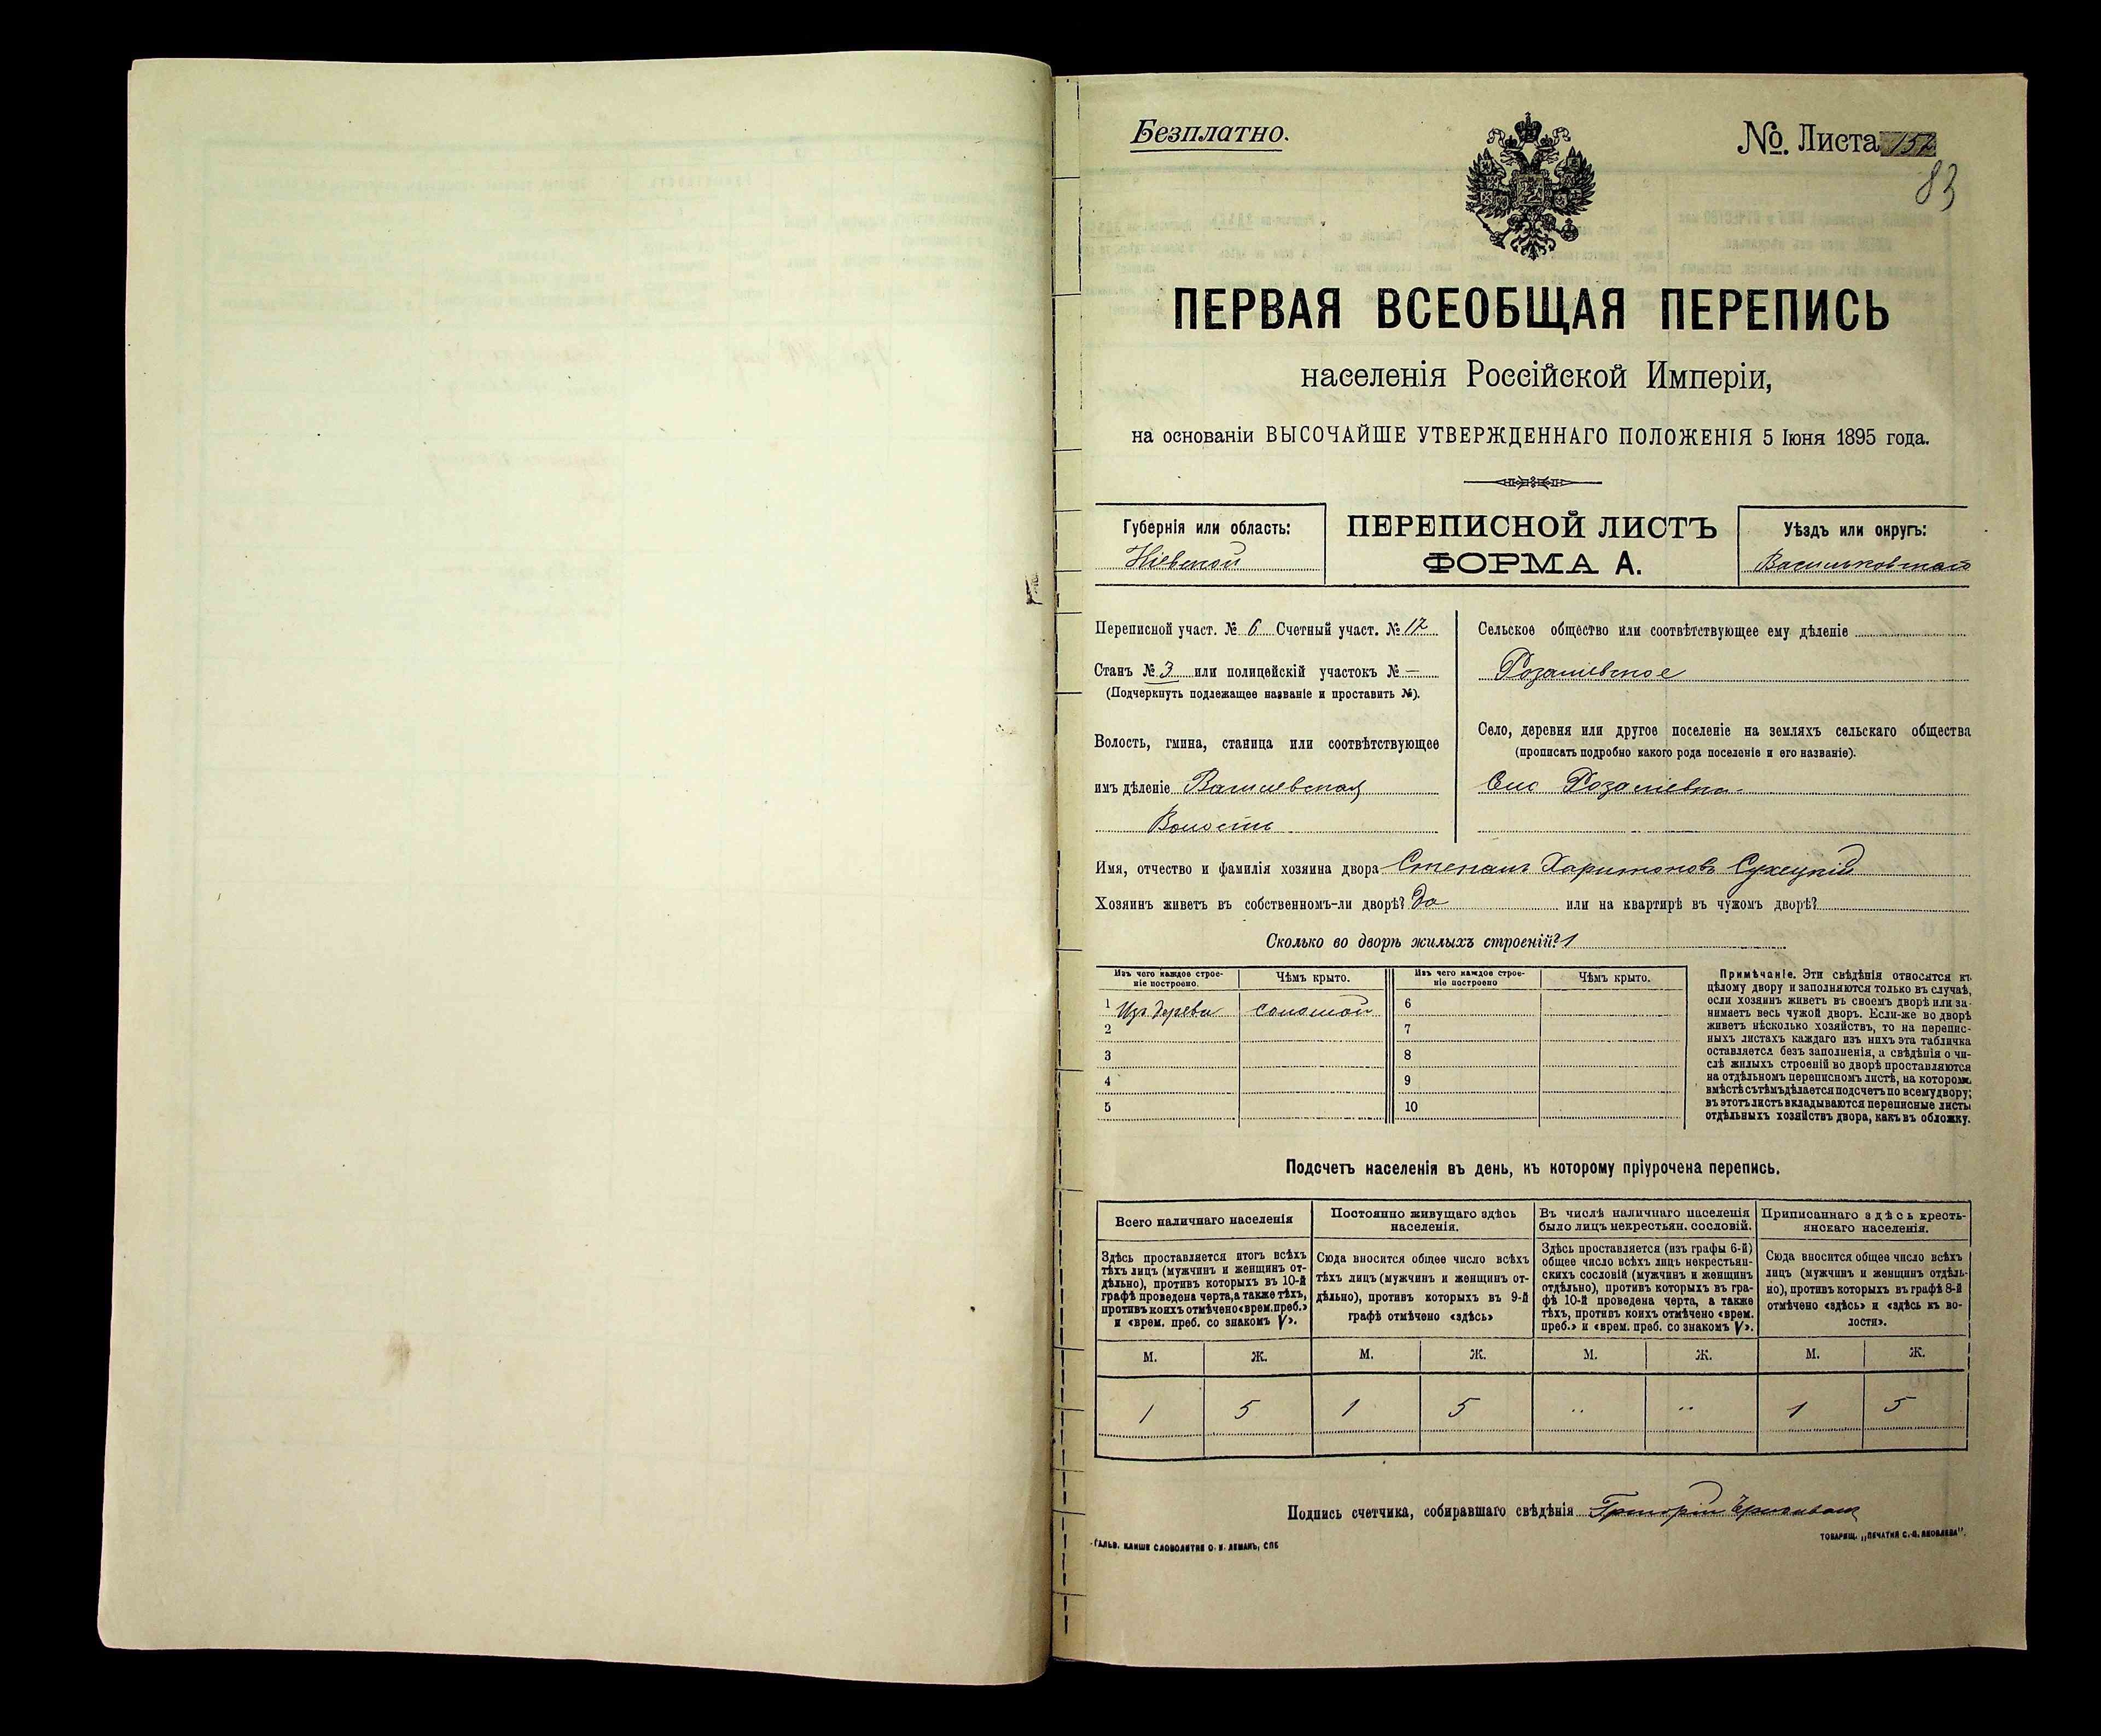 Безплатно.
№. Листа 152
83
ПЕРВАЯ ВСЕОБЩАЯ ПЕРЕПИСЬ
населенія Россійской Имперіи,
на основаніи ВЫСОЧАЙШЕ УТВЕРЖДЕННАГО ПОЛОЖЕНІЯ 5 Іюня 1895 года.
Губернія или область:
Кіевской
ПЕРЕПИСНОЙ ЛИСТЪ
ФОРМА А.
Уѣздъ или округъ:
Васильковскаго
Переписной участ. № 6 Счетный участ. № 12
Станъ № 3 или полицейскій участокъ № —
(Подчеркнуть подлежащее названіе и проставить №).
Волость, гмина, станица или соотвѣтствующее
имъ дѣленіе
Волость
Сельское общество или соотвѣтствующее ему дѣленіе
Розаліевское
Село, деревня или другое поселеніе на земляхъ сельскаго общества
(прописать подробно какого рода поселеніе и его названіе).
Село Розаліевка
Имя, отчество и фамилія хозяина двора Степанъ Харитоновъ Сухецкій
Хозяинъ живетъ въ собственномъ-ли дворѣ? Да или на квартирѣ въ чужомъ дворѣ?
Сколько во дворѣ жилыхъ строеній? 1
Изъ чего каждое строе-
ніе построено.
Чѣмъ крыто.
Изъ чего каждое строе-
ніе построено
Чѣмъ крыто.
1 Изъ дерева соломой 6
2 7
3 8
4 9
5 10
Примѣчаніе. Эти свѣдѣнія относятся къ
цѣлому двору и заполняются только въ случаѣ,
если хозяинъ живетъ въ своемъ дворѣ или за-
нимаетъ весь чужой дворъ. Если-же во дворѣ
живетъ нѣсколько хозяйствъ, то на перепис-
ныхъ листахъ каждаго изъ нихъ эта табличка
оставляется безъ заполненія, а свѣдѣнія о чи-
слѣ жилыхъ строеній во дворѣ проставляются
на отдѣльномъ переписномъ листѣ, на которомъ
вмѣстѣ съ тѣмъ дѣлается подсчетъ по всему двору;
въ этотъ листъ вкладываются переписные листы
отдѣльныхъ хозяйствъ двора, какъ въ обложку.
Подсчетъ населенія въ день, къ которому пріурочена перепись.
Всего наличнаго населенія
Здѣсь проставляется итогъ всѣхъ
тѣхъ лицъ (мужчинъ и женщинъ от-
дѣльно), противъ которыхъ въ 10-й
графѣ проведена черта, а также тѣхъ,
противъ коихъ отмѣчено «врем. преб.»
и «врем. преб. со знакомъ V».
Постоянно живущаго здѣсь
населенія.
Сюда вносится общее число всѣхъ
тѣхъ лицъ (мужчинъ и женщинъ от-
дѣльно), противъ которыхъ въ 9-й
графѣ отмѣчено «здѣсь»
Въ числѣ наличнаго населенія
было лицъ некрестьян. сословій.
Здѣсь проставляется (изъ графы 6-й)
общее число всѣхъ лицъ некрестьян-
скихъ сословій (мужчинъ и женщинъ
отдѣльно), противъ которыхъ въ гра-
фѣ 10-й проведена черта, а также
тѣхъ, противъ коихъ отмѣчено «врем.
преб.» и «врем. преб. со знакомъ V».
Приписаннаго здѣсь кресть-
янскаго населенія.
Сюда вносится общее число всѣхъ
лицъ (мужчинъ и женщинъ отдѣль-
но), противъ которыхъ въ графѣ 8-й
отмѣчено «здѣсь» и «здѣсь къ во-
лости».
М. Ж. М. Ж. М. Ж. М. Ж.
1 5 1 5 " " 1 5
Подпись счетчика, собиравшаго свѣдѣнія Григорій
ГАЛЬВ. КЛИШЕ СЛОВОЛИТНИ О. И. ЛЕМАНЪ, СПБ
ТОВАРИЩ. „ПЕЧАТНЯ С. П. ЯКОВЛЕВА".